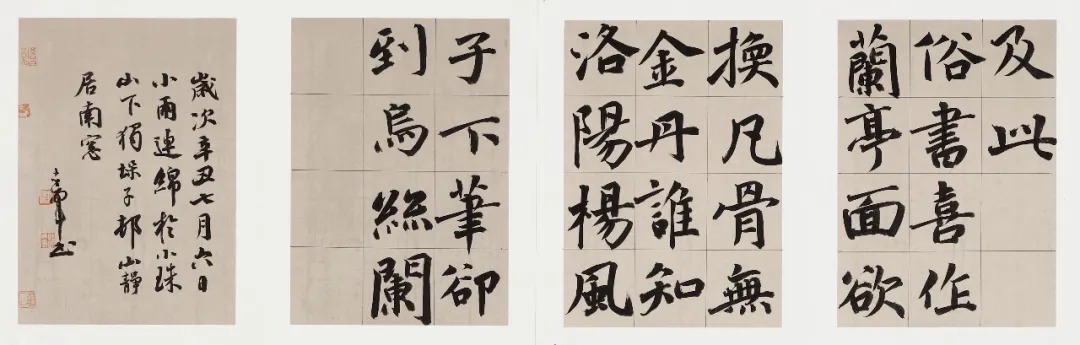 及此
俗書喜作
蘭亭面欲
換凡骨無
金丹誰知
洛陽楊風
子下筆卻
到烏絲闌
歲次辛丑七月六日
小雨連綿於小珠
山下獨垛子邨山靜
居南窓